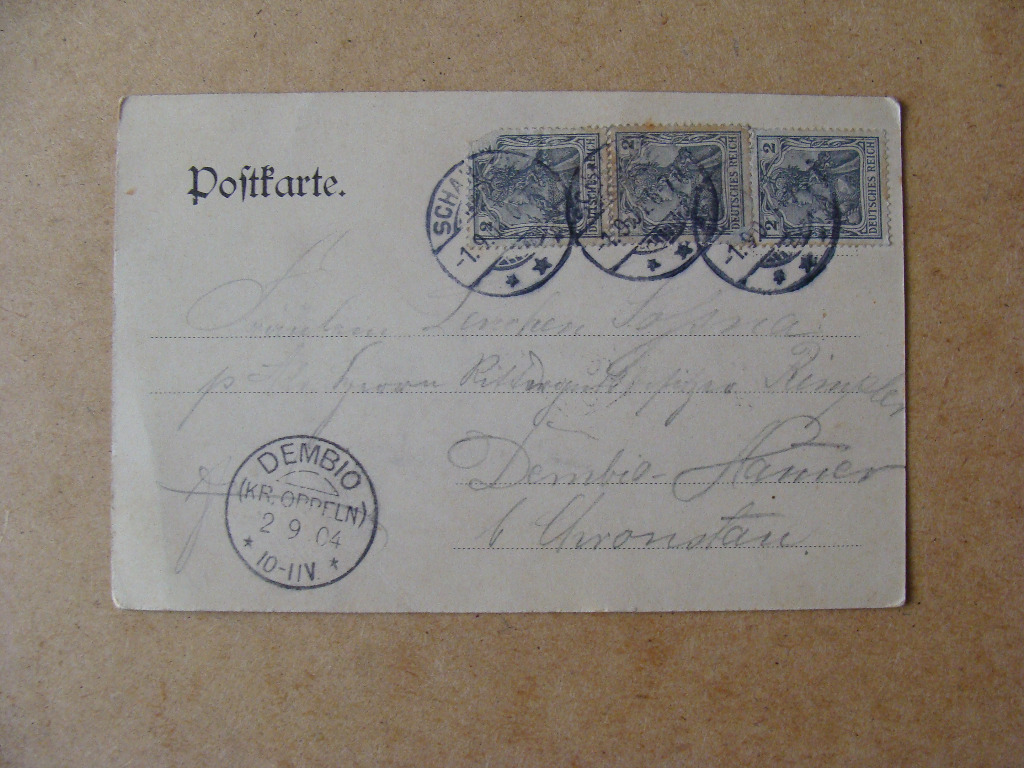 Postkarte.
SCHA
-1.9.
2
DEUTSCHES REICH
2
DEUTSCHES REICH
2 2
DEUTSCHES REICH
-1.9.
Fräulein Lenchen
Herrn Rittergutsbesitzer
Dembio-Hamer
b/ Chronstau.
DEMBIO
(KR. OPPELN)
2 9 04
* 10-11V. *